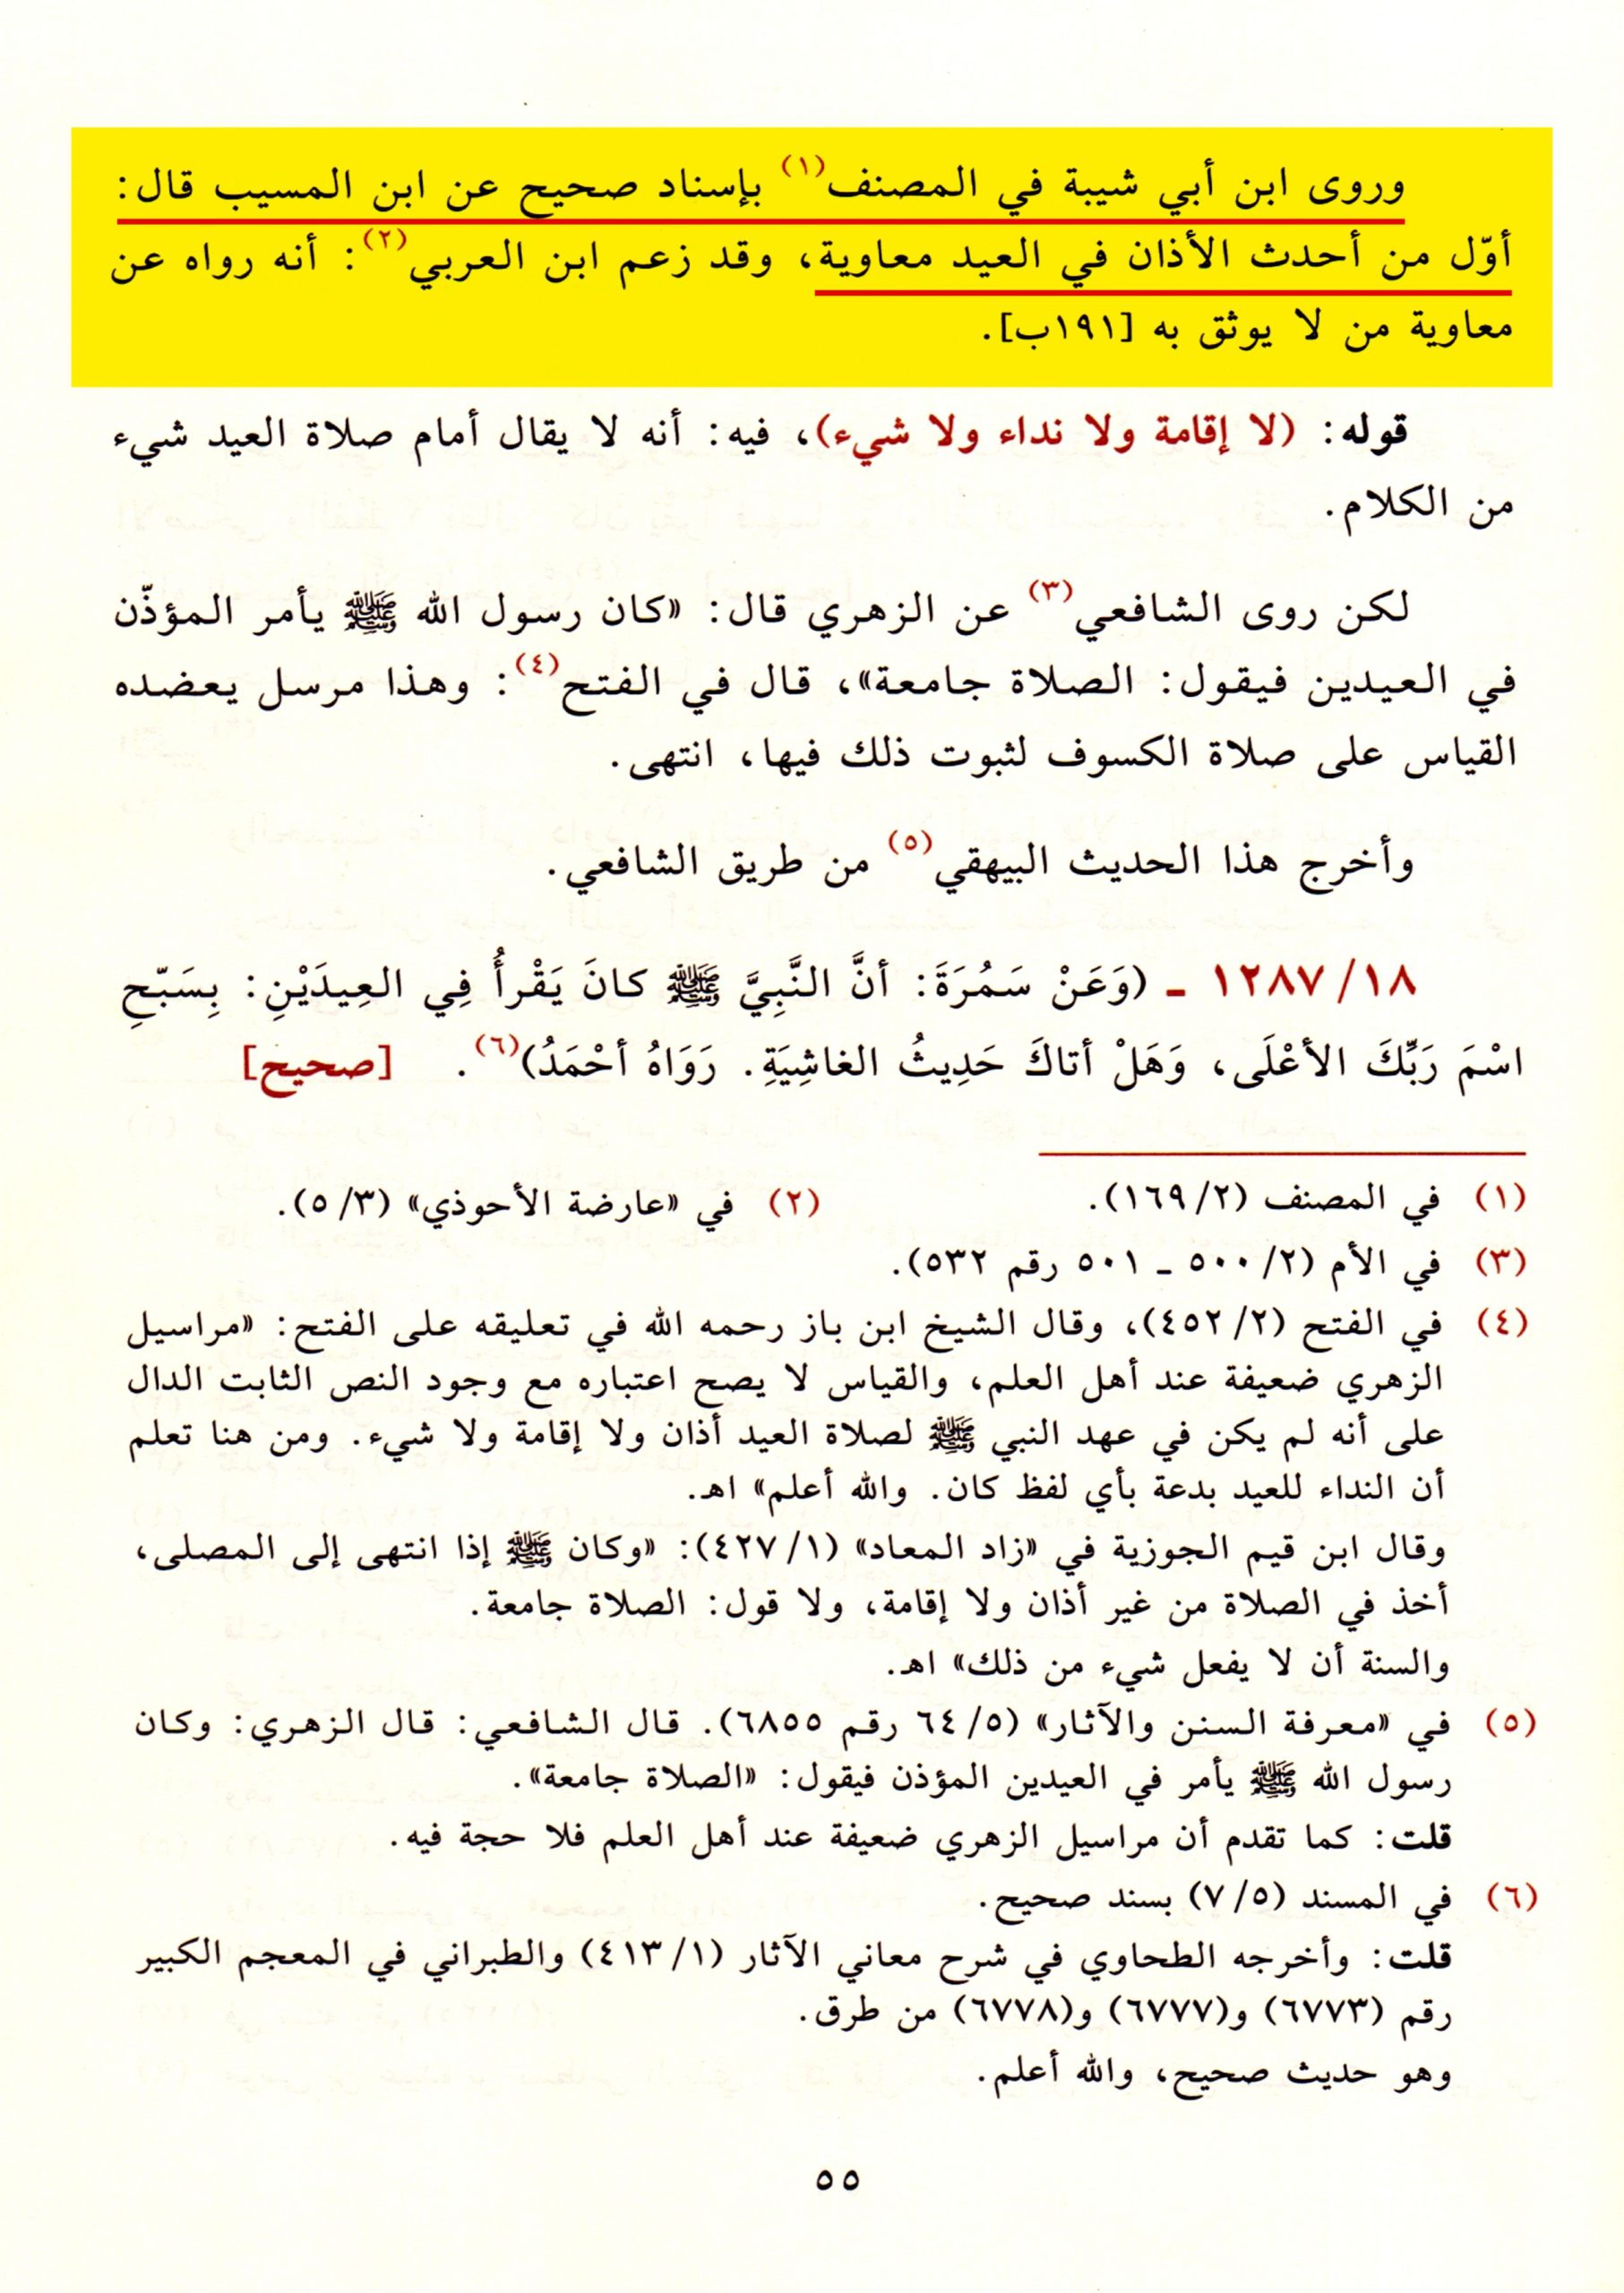 وروى ابن أبي شيبة في المصنف(١) بإسناد صحيح عن ابن المسيب قال:
أوّل من أحدث الأذان في العيد معاوية، وقد زعم ابن العربي(٢): أنه رواه عن
معاوية من لا يوثق به [١٩١ب].
قوله: (لا إقامة ولا نداء ولا شيء)، فيه: أنه لا يقال أمام صلاة العيد شيء
من الكلام.
لكن روى الشافعي(٣) عن الزهري قال: «كان رسول الله ﷺ يأمر المؤذّن
في العيدين فيقول: الصلاة جامعة»، قال في الفتح(٤): وهذا مرسل يعضده
القياس على صلاة الكسوف لثبوت ذلك فيها، انتهى.
وأخرج هذا الحديث البيهقي(٥) من طريق الشافعي.
١٢٨٧/١٨ ـ (وَعَنْ سَمُرَةَ: أنَّ النَّبِيَّ ﷺ كانَ يَقْرأُ فِي العِيدَيْنِ: بِسَبّحِ
اسْمَ رَبِّكَ الأعْلَى، وَهَلْ أتاكَ حَدِيثُ الغاشِيَةِ. رَوَاهُ أحْمَدُ)(٦). [صحيح]
(١) في المصنف (١٦٩/٢). (٢) في «عارضة الأحوذي» (٥/٣).
(٣) في الأم (٥٠٠/٢ ـ ٥٠١ رقم ٥٣٢).
(٤) في الفتح (٤٥٢/٢)، وقال الشيخ ابن باز رحمه الله في تعليقه على الفتح: «مراسيل
الزهري ضعيفة عند أهل العلم، والقياس لا يصح اعتباره مع وجود النص الثابت الدال
على أنه لم يكن في عهد النبي ﷺ لصلاة العيد أذان ولا إقامة ولا شيء. ومن هنا تعلم
أن النداء للعيد بدعة بأي لفظ كان. والله أعلم» اهـ.
وقال ابن قيم الجوزية في «زاد المعاد» (٤٢٧/١): «وكان ﷺ إذا انتهى إلى المصلى،
أخذ في الصلاة من غير أذان ولا إقامة، ولا قول: الصلاة جامعة.
والسنة أن لا يفعل شيء من ذلك» اهـ.
(٥) في «معرفة السنن والآثار» (٦٤/٥ رقم ٦٨٥٥). قال الشافعي: قال الزهري: وكان
رسول الله ﷺ يأمر في العيدين المؤذن فيقول: «الصلاة جامعة».
قلت: كما تقدم أن مراسيل الزهري ضعيفة عند أهل العلم فلا حجة فيه.
(٦) في المسند (٧/٥) بسند صحيح.
قلت: وأخرجه الطحاوي في شرح معاني الآثار (٤١٣/١) والطبراني في المعجم الكبير
رقم (٦٧٧٣) و(٦٧٧٧) و(٦٧٧٨) من طرق.
وهو حديث صحيح، والله أعلم.
٥٥